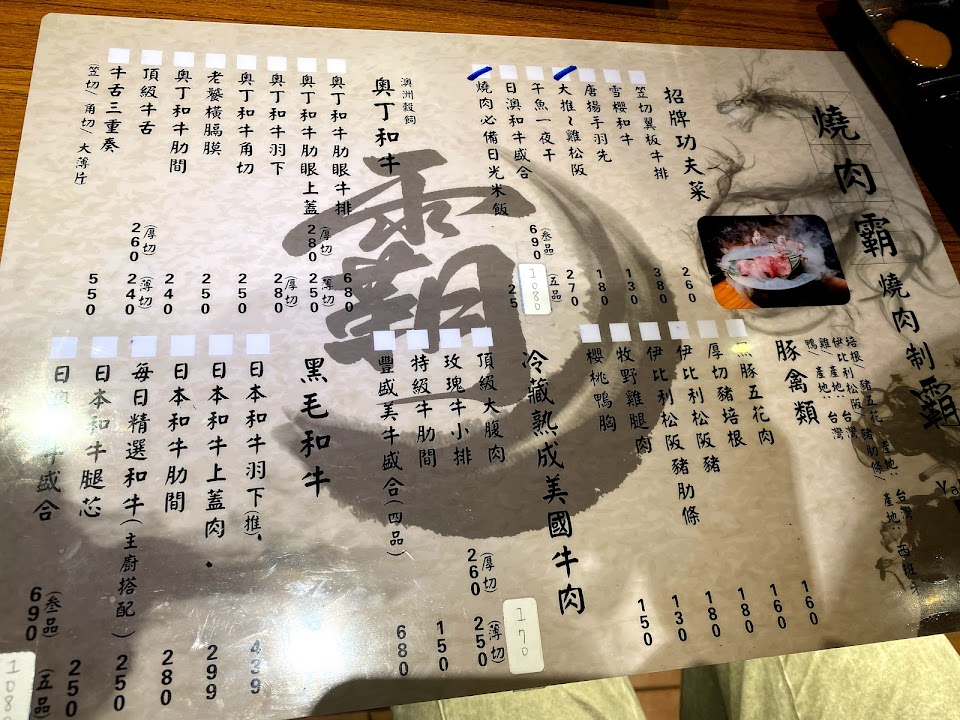 燒肉霸
燒肉制霸
招牌功夫菜
笠切翼板牛排 260
雪櫻和牛 380
唐揚手羽先 130
大推~雞松阪 180
牛魚一夜干 270
日澳和牛盛合 (叁品)690 (五品)1080
燒肉必備日光米飯 25
澳洲穀飼
奧丁和牛
奧丁和牛肋眼牛排 680
奧丁和牛肋眼上蓋 (厚切)280 (薄切)250
奧丁和牛羽下 (厚切)280
奧丁和牛角切 250
老饕橫膈膜 250
奧丁和牛肋間 240
頂級牛舌 (厚切)260 (薄切)240
牛舌三重奏 550
(笠切/角切/大薄片)
培根/豬五花/豬肋條/產地:台灣
伊比利松阪/產地:西班
雞/產地:台灣
鴨/產地:台灣
豚禽類
黑豚五花肉 160
厚切豬培根 160
伊比利松阪豬 180
伊比利松阪豬肋條 180
牧野雞腿肉 130
櫻桃鴨胸 150
冷藏熟成美國牛肉
頂級大腹肉 170
玫瑰牛小排 (厚切)260 (薄切)250
特級牛肋間 150
豐盛美牛盛合(四品) 680
黑毛和牛
日本和牛羽下(推) 439
日本和牛上蓋肉 299
日本和牛肋間 280
每日精選和牛(主廚搭配) 250
日本和牛腿芯 250
日 牛盛合 (叁品)690 (五品)1080
霸